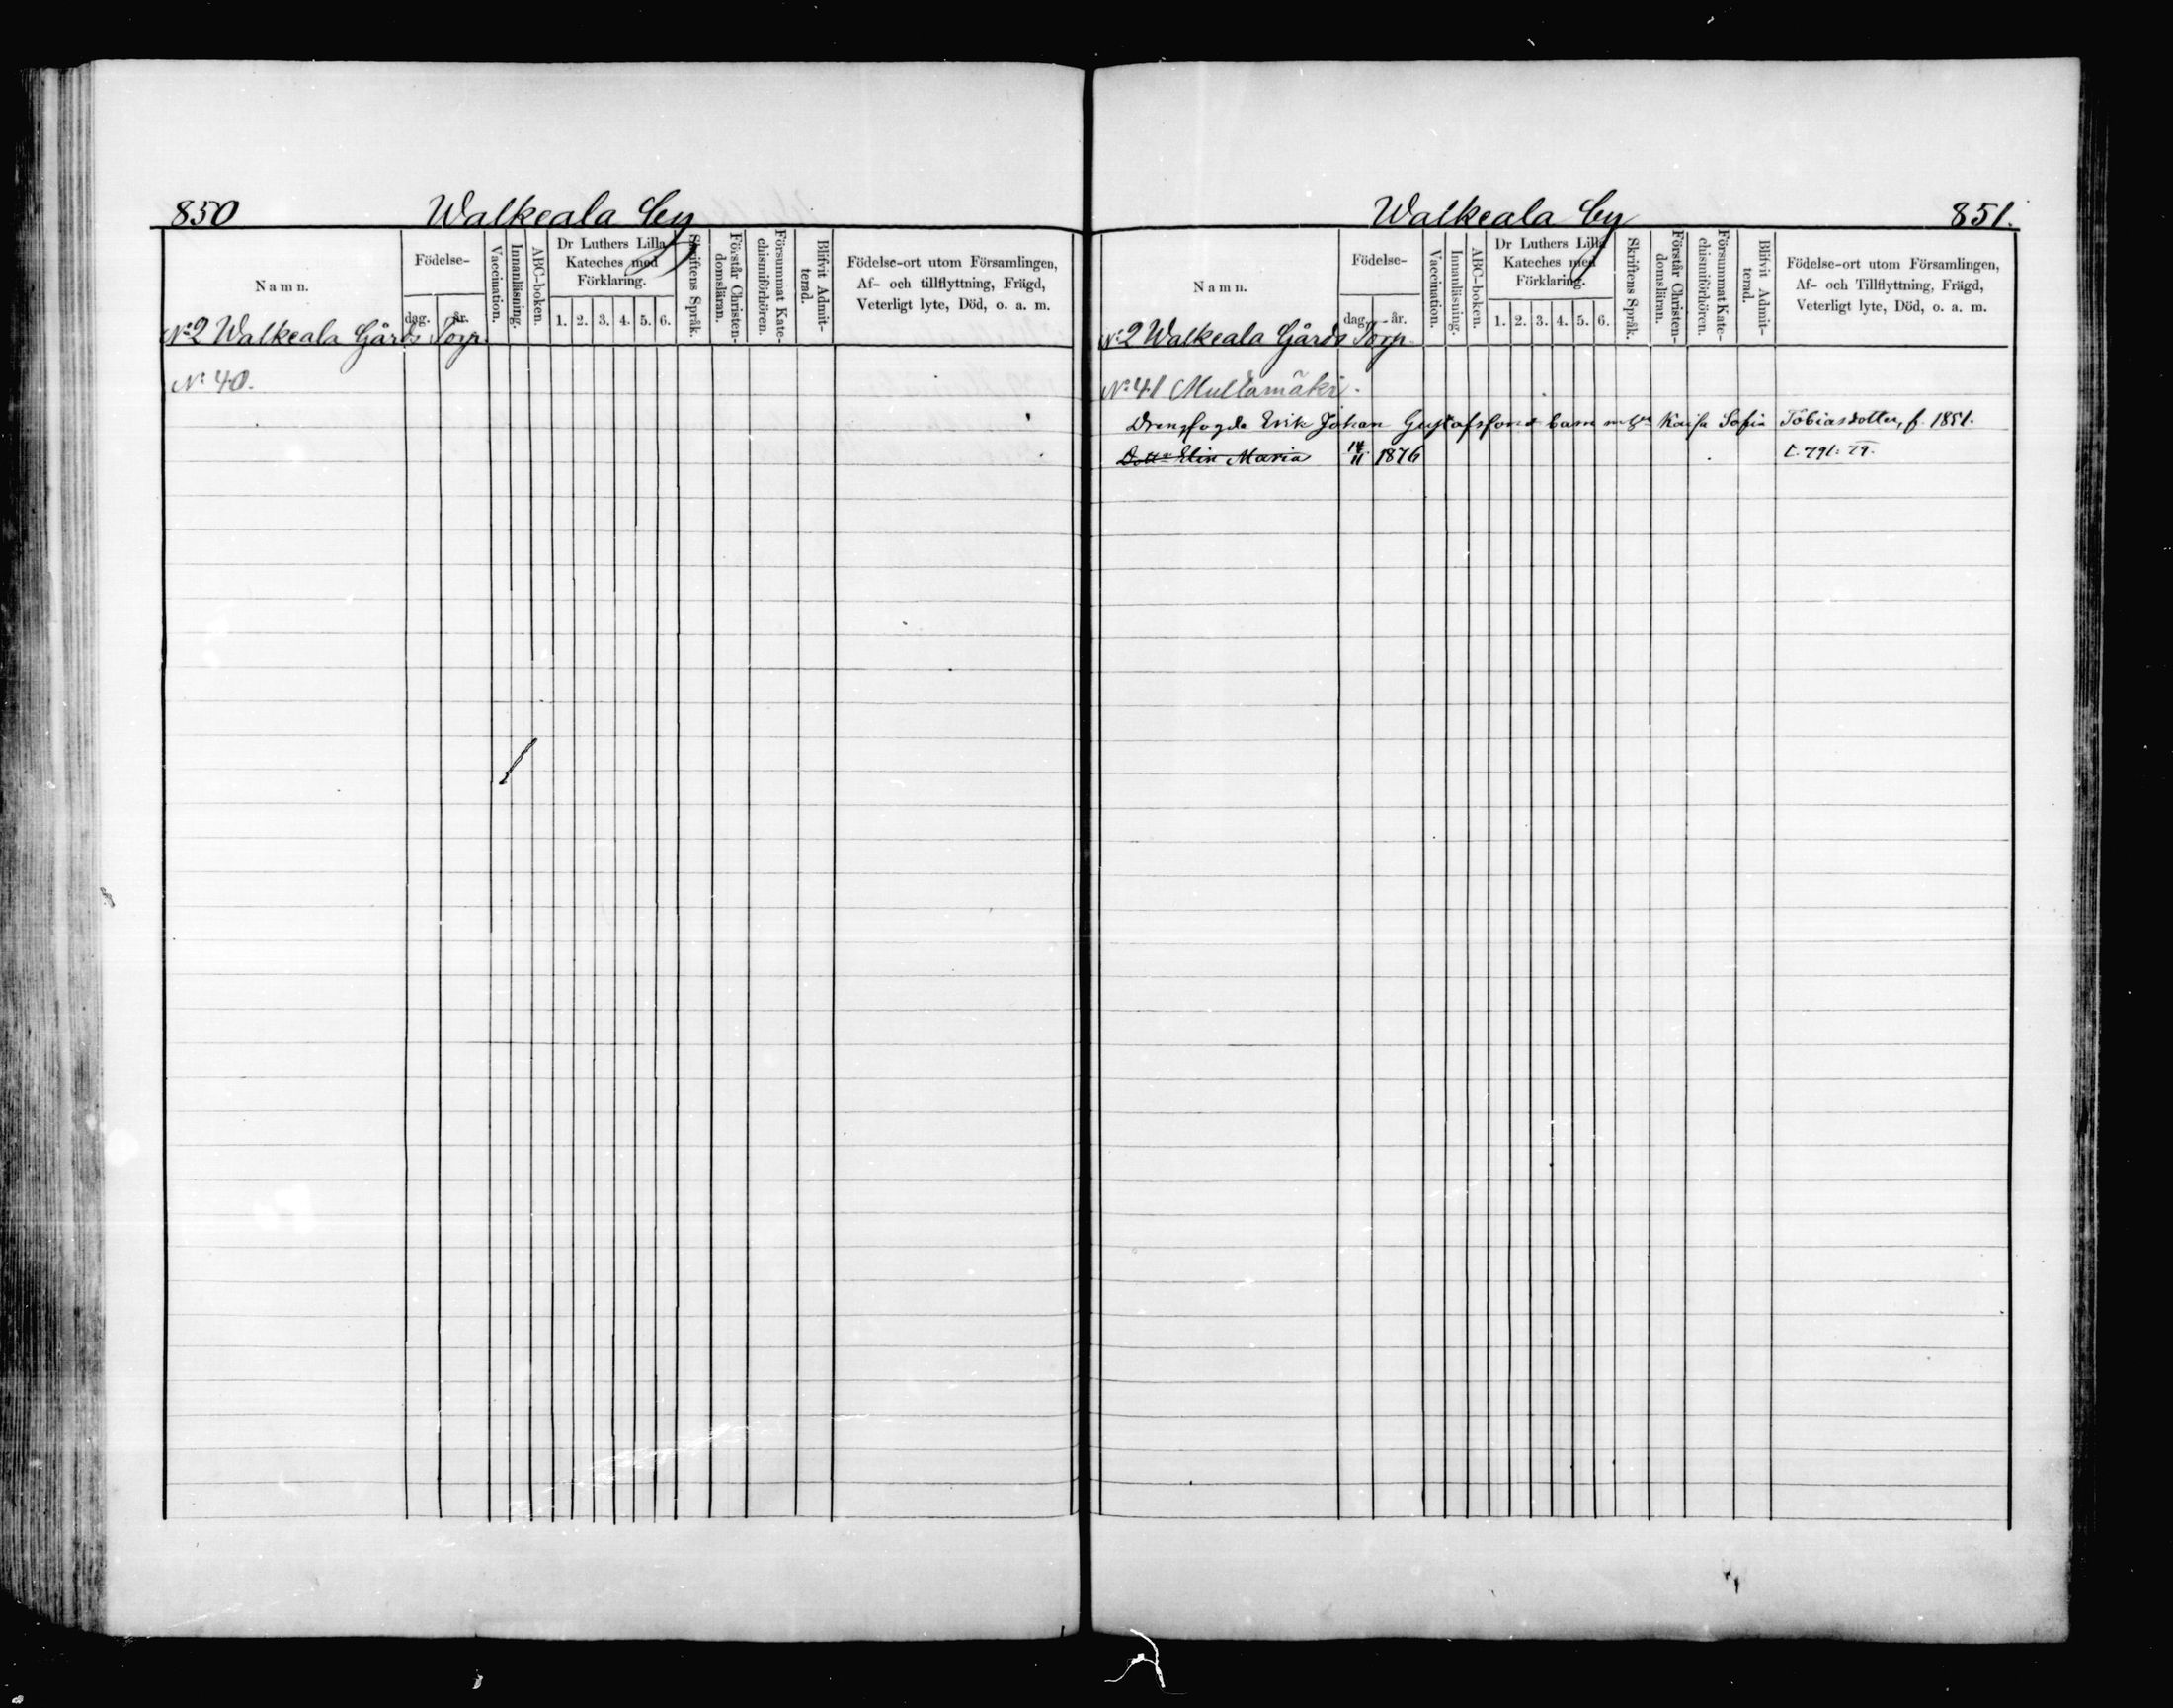 850 Walkeala by
Namn.
Födelse-
dag. år.
Vaccination.
Innanläsning.
ABC-boken.
Dr Luthers Lilla
Kateches med
Förklaring.
1. 2. 3. 4. 5. 6.
Skriftens Språk.
Förstår Christen-
domsläran.
Försummat Kate-
chismiförhören.
Blifvit Admit-
terad.
Födelse-ort utom Församlingen,
Af- och tillflyttning, Frägd,
Veterligt lyte, Död, o. a. m.
No 2 Walkeala Gårds Torp.
No 40.
Walkeala by 851.
Namn.
Födelse-
dag. år.
Vaccination.
Innanläsning.
ABC-boken.
Dr Luthers Lilla
Kateches med
Förklaring.
1. 2. 3. 4. 5. 6.
Skriftens Språk.
Förstår Christen-
domsläran.
Försummat Kate-
chismiförhören.
Blifvit Admit-
terad.
Födelse-ort utom Församlingen,
Af- och Tillflyttning, Frägd,
Veterligt lyte, Död, o. a. m.
No 2 Walkeala Gårds Torp.
No 41 Mullamäki.
Drengfogde Erik Johan Gustafssons barn m. Kaisa Sofia Tobiasdotter, f. 1851.
Dottr Elin Maria 14/11 1876 791. 79.